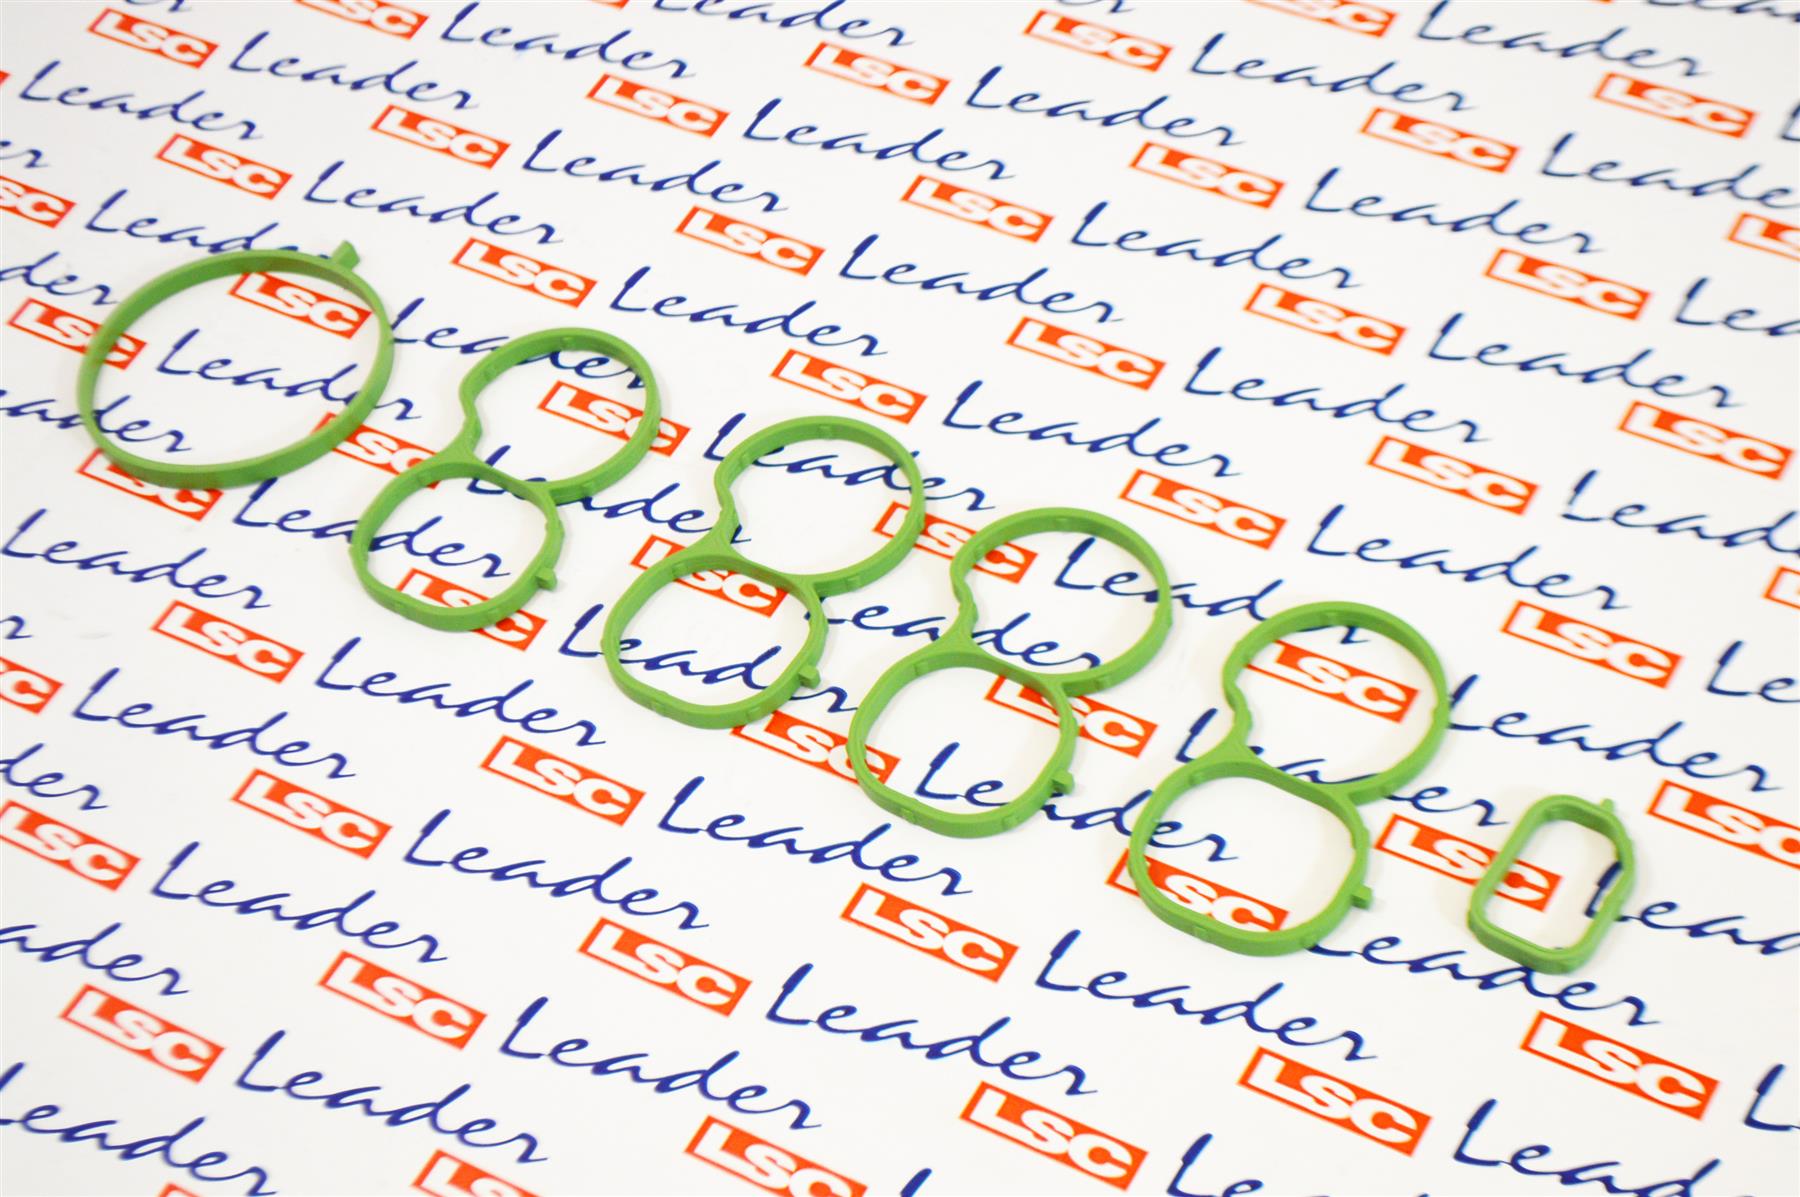 LSC Leader LSC Leader LSC Leader LSC Leader
LSC Leader LSC Leader LSC Leader LSC Leader
LSC Leader LSC Leader LSC Leader LSC Leader
LSC Leader LSC Leader LSC Leader LSC Leader
LSC Leader LSC Leader LSC Leader LSC Leader
LSC Leader LSC Leader LSC Leader LSC Leader
LSC Leader LSC Leader LSC Leader LSC Leader
LSC Leader LSC Leader LSC Leader
LSC Leader LSC Leader LSC Leader
LSC Leader LSC Leader